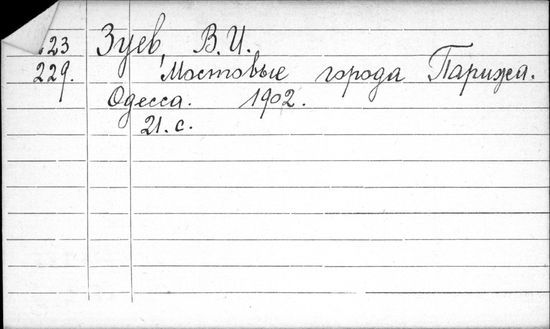 .23 Зуев, В.И.
229. Мостовые города Парижа.
Одесса. 1902.
21. с.